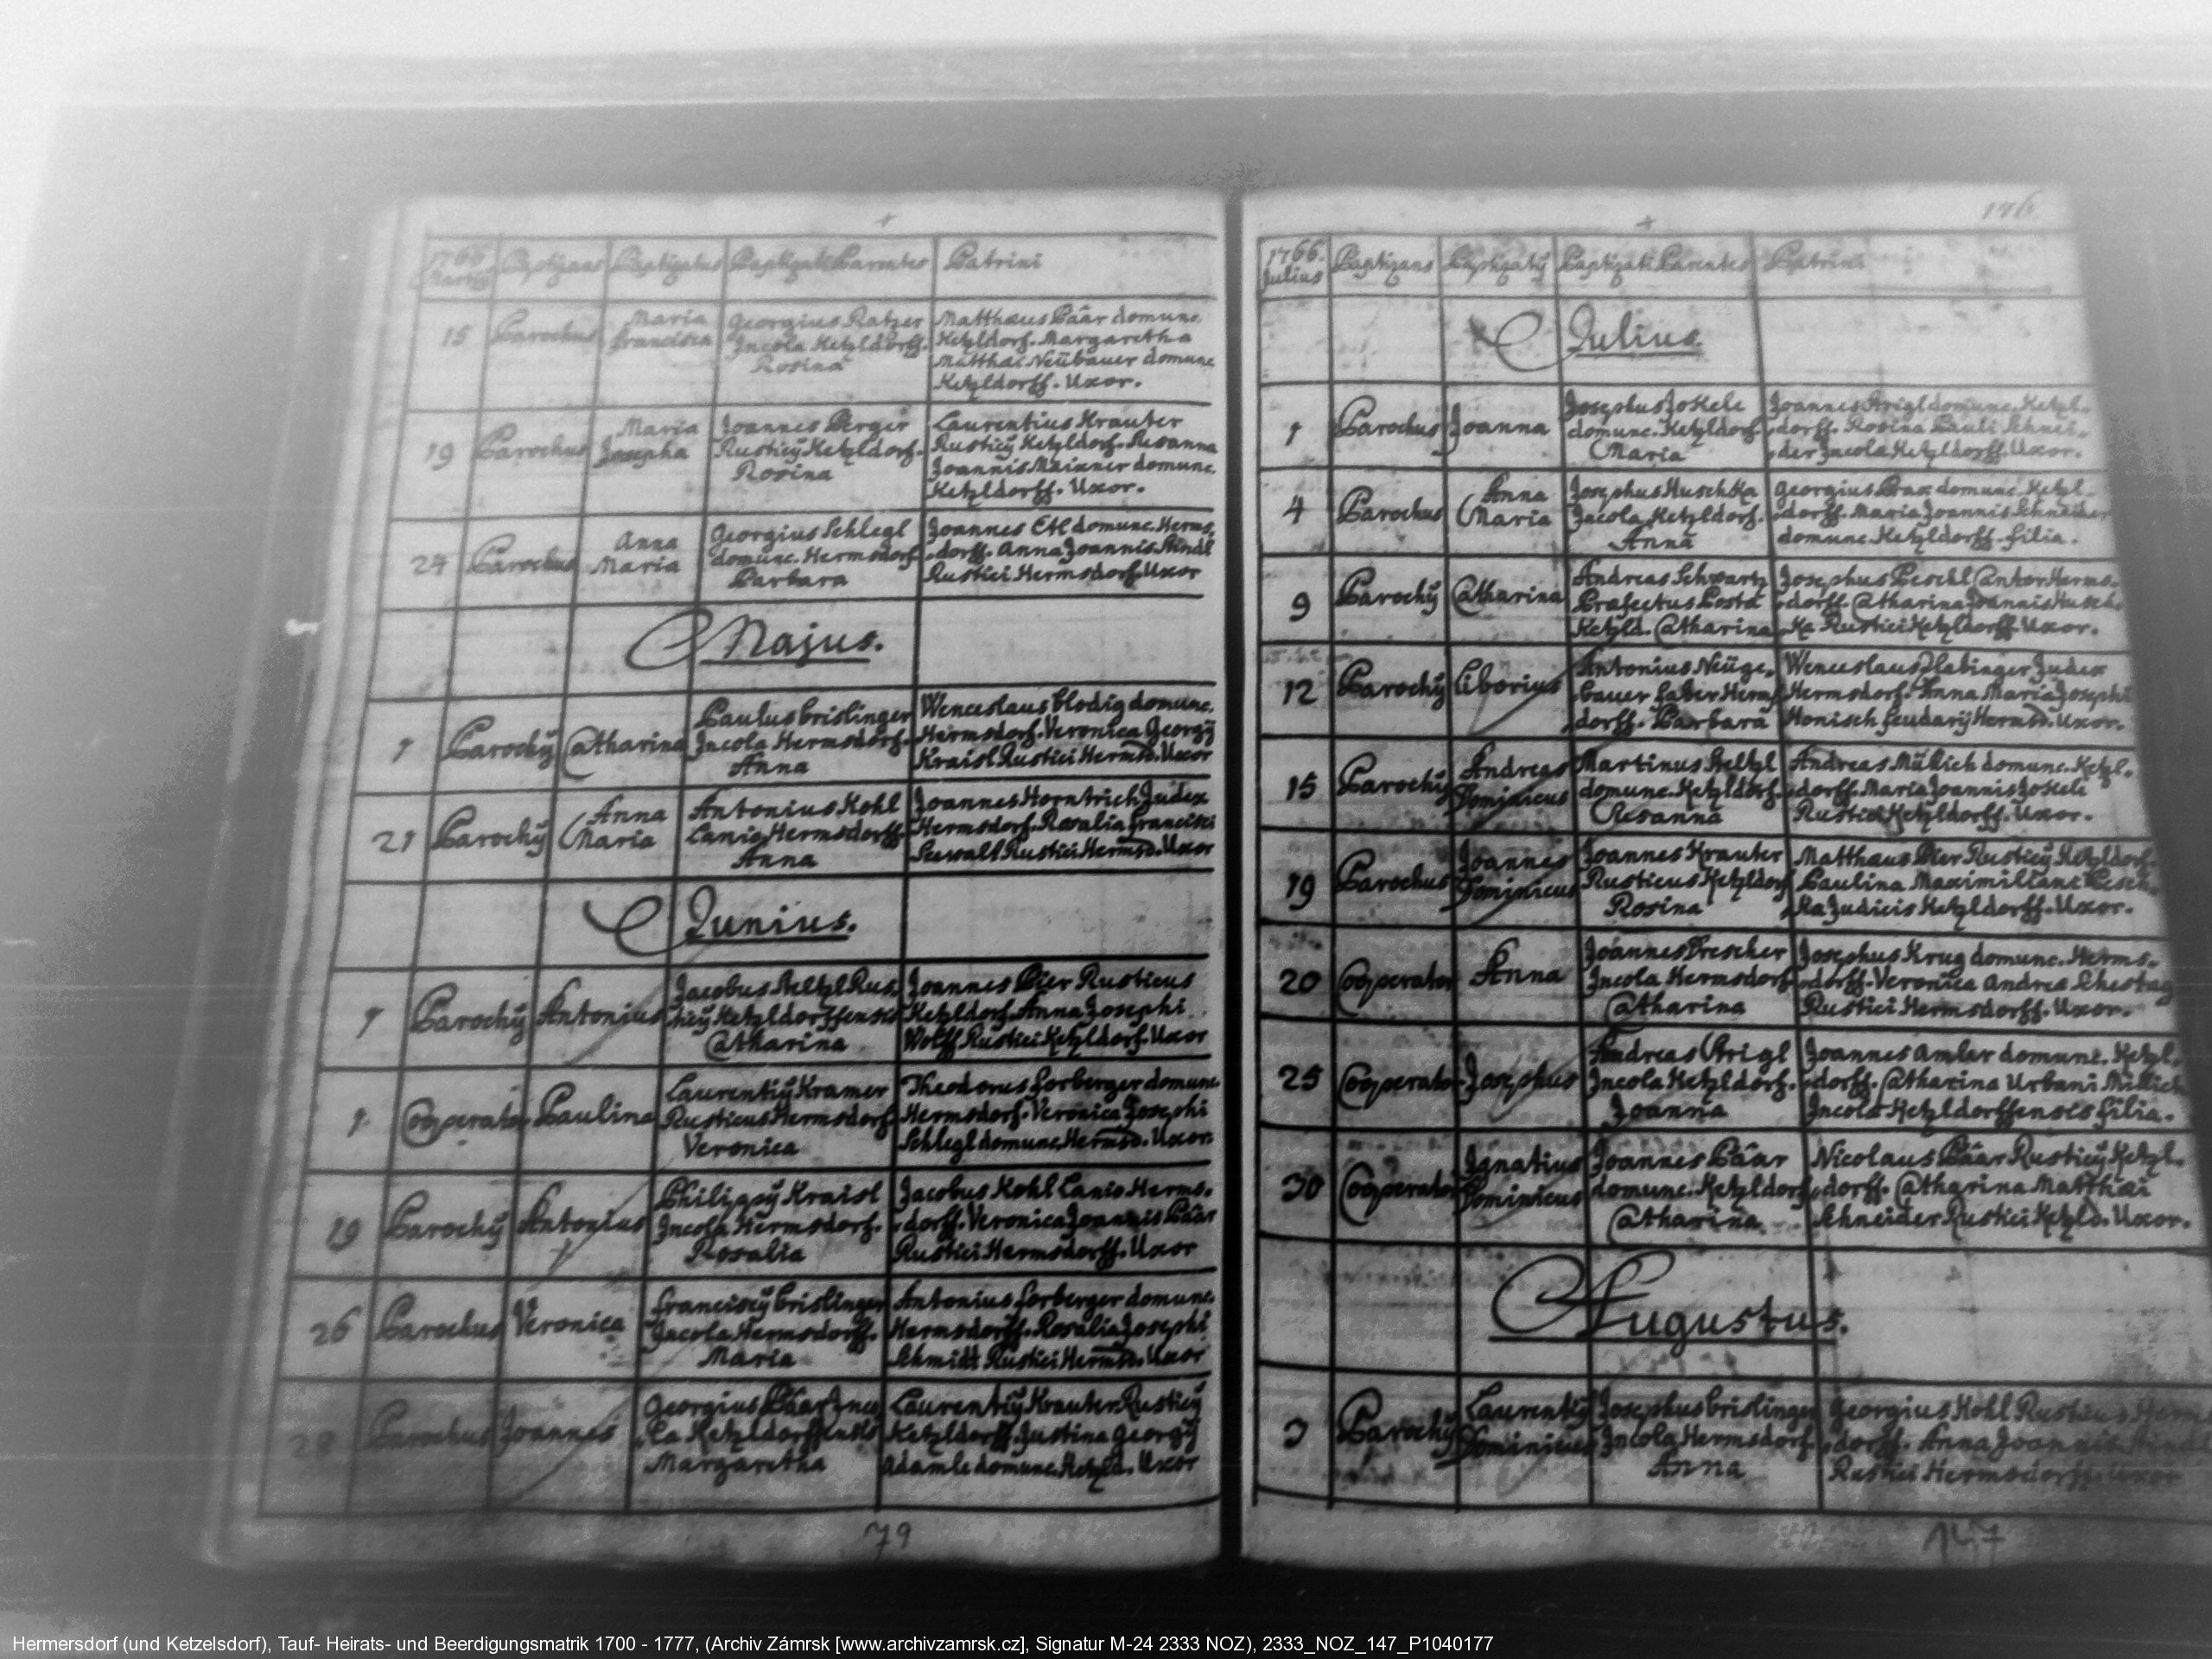 1766 Baptizans Baptizatus Baptizati Parentes Patrini
15 Parochus Maria Francisca
Georgius Ratzer
Incola Ketzldorff.
Rosina
Matthæus Päar domunc.
Ketzldorf. Margaretha
Matthæi Neübauer domunc
Ketzldorff. Uxor.
19 Parochus Maria Josepha
Joannes Berger
Rusticy Ketzldorf.
Rosina
Laurentius Krauter
Rusticy Ketzldorf. Rosanna
Joannis Maixner domunc.
Ketzldorff. Uxor.
24 Parochus Anna Maria
Georgius Schlegl
domunc. Hermsdorf.
Barbara
Joannes Etl domunc. Herms,
dorff. Anna Joannis
Rustici Hermsdorf. Uxor
Majus.
1 Parochÿ Catharina
Paulus Grislinger
Incola Hermsdorf.
Anna
Wenceslaus Blodig domunc.
Hermsdorf. Veronica Georgÿ
Kraisl Rustici Hermsd. Uxor
21 Parochÿ Anna Maria
Antonius Kohl
Lanio Hermsdorff.
Anna
Joannes Horntrich Judex
Hermsdorf. Rosalia Francisci
Seewalt Rustici Hermsd. Uxor
Junius.
1 Parochÿ Antonius
Jacobus Steltzl Rus,
ticÿ Ketzldorffensis
Catharina
Joannes Bier Rusticus
Ketzldorf. Anna Josephi
Wolff Rustici Ketzldorf. Uxor
1 Cooperator Paulina
Laurentiÿ Kramer
Rusticus Hermsdorf.
Veronica
Theodorus Forberger domunc
Hermsdorf. Veronica Josephi
Schlegl domunc. Hermsd. Uxor.
19 Parochÿ Antonius
Philippÿ Kraisl
Incola Hermsdorf.
Rosalia
Jacobus Kohl Lanio Herms.
dorff. Veronica Joannis Päar
Rustici Hermsdorff. Uxor
26 Parochus Veronica
Franciscÿ Grislinger
Incola Hermsdorff.
Maria
Antonius Forberger domunc.
Hermsdorff. Rosalia Josephi
Schmidt Rustici Hermsd. Uxor
28 Parochus Joannes
Georgius Päar Inco
la Ketzldorffensis
Margaretha
Laurentÿ Krauter Rusticÿ
Ketzldorff. Justina Georgÿ
Adamle domunc. Ketzld. Uxor
79
146
1766. Julius Baptizans Baptizatÿ Baptizati Parentes Patrini
Julius.
1 Parochus Joanna
Josephus Jokele
domunc. Ketzldorf.
Maria
Joannes Strigl domunc. Ketzl,
dorff. Rosina Pauli Schnei,
der Incola Ketzldorff. Uxor.
4 Parochus Anna Maria
Josephus Huschka
Incola Ketzldorf.
Anna
Georgius domunc. Ketzl.
dorff. Maria Joannis Schneider
domunc. Ketzldorff. filia.
9 Parochÿ Catharina
Andreas Schwartz
Præfectus Posta
Ketzld. Catharina
Josephus Peschl Cantor Herms.
dorff. Catharina Joannis Husch,
ka Rustici Ketzldorff. Uxor.
12 Parochÿ Liborius
Antonius Neüge,
bauer Faber Herms
dorff. Barbara
Wenceslaus Judex
Hermsdorf. Anna Maria Josephi
Honisch feudarÿ Hermsd. Uxor.
15 Parochÿ Andreas Dominicus
Martinus Steltzl
domunc. Ketzldorf.
Rosanna
Andreas Müllich domunc. Ketzl.
dorff. Maria Joannis Jokele
Rustici Ketzldorff. Uxor.
19 Parochus Joannes Dominicus
Joannes Krauter
Rusticus Ketzldorf
Rosina
Matthæus Bier Rusticÿ Ketzldorf.
Paulina Maximiliani
ka Judicis Ketzldorff. Uxor.
20 Cooperator Anna
Joannes Drescher
Incola Hermsdorf.
Catharina
Josephus Krug domunc. Herms.
dorff. Veronica Andreæ Schestag
Rustici Hermsdorff. Uxor.
25 Cooperator Josephus
Andreas Strigl
Incola Ketzldorf.
Joanna
Joannes Amler domunc. Ketzl.
dorff. Catharina Urbani Millich
Incola Ketzldorffenses filia.
30 Cooperator Ignatius Dominicus
Joannes Päar
domunc. Ketzldorf.
Catharina
Nicolaus Päar Rusticÿ Ketzl.
dorff. Catharina Matthæi
Schneider Rustici Ketzld. Uxor.
Augustus.
3 Parochÿ Laurentÿ Dominicus
Josephus Grislinger
Incola Hermsdorf.
Anna
Georgius Kohl Rusticus Herm
dorff. Anna Joannis
Rustici Hermsdorff. Uxor
147
Hermersdorf (und Ketzelsdorf), Tauf- Heirats- und Beerdigungsmatrik 1700 - 1777, (Archiv Zámrsk [www.archivzamrsk.cz], Signatur M-24 2333 NOZ), 2333_NOZ_147_P1040177